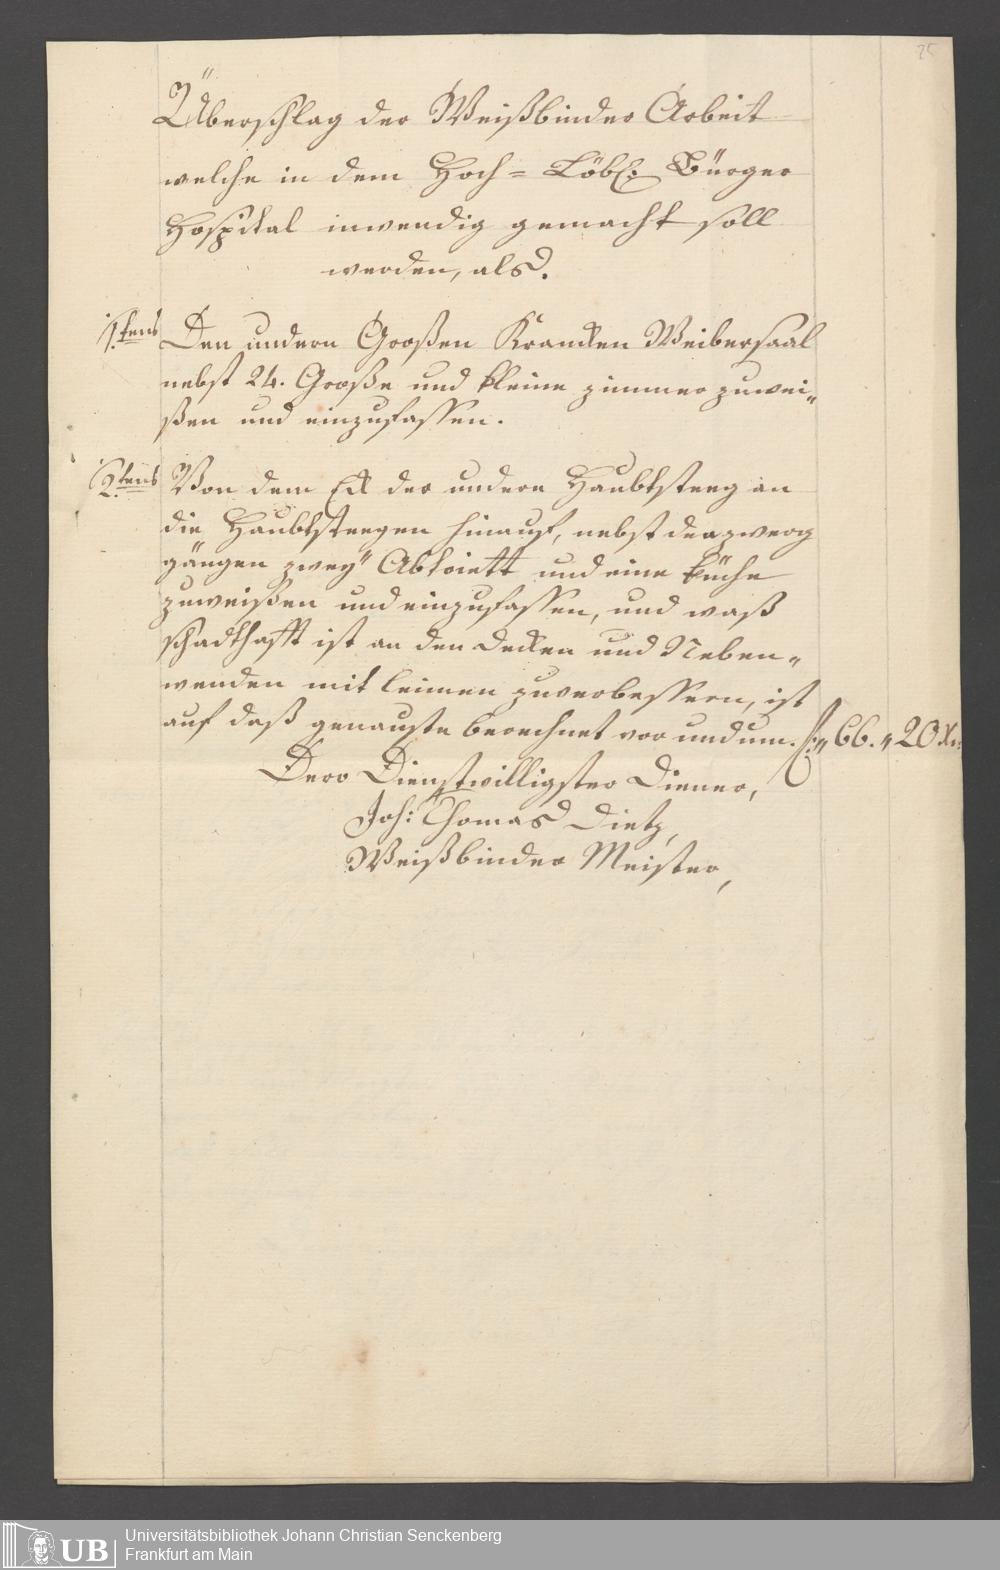 25
Überschlag der Weißbinder Arbeit
welche in dem Hoch= Löbl: Bürger
Hospital inwendig gemacht soll
werden, als.
1tens Den undern Großen Krancken Weibersaal
nebst 24. Große und kleine zimmer zuwei„
ßen und einzufassen.
2tens Von dem Eck der undere Haubtsteeg an
die Haubtsteegen hinauf, nebst der zwerg
gängen zweÿ Abtriett und eine küche
zuweißen und einzufassen, und waß
schadthafft ist an den Decken und Neben„
wenden mit leimen zuverbessern, ist
auf daß genauste berechnet vor und um. f: „ 66. „ 20 Xr:
Dero Dienstwilligster Diener,
Joh: Thomas Dietz,
Weißbinder Meister,
UB
Universitätsbibliothek Johann Christian Senckenberg
Frankfurt am Main